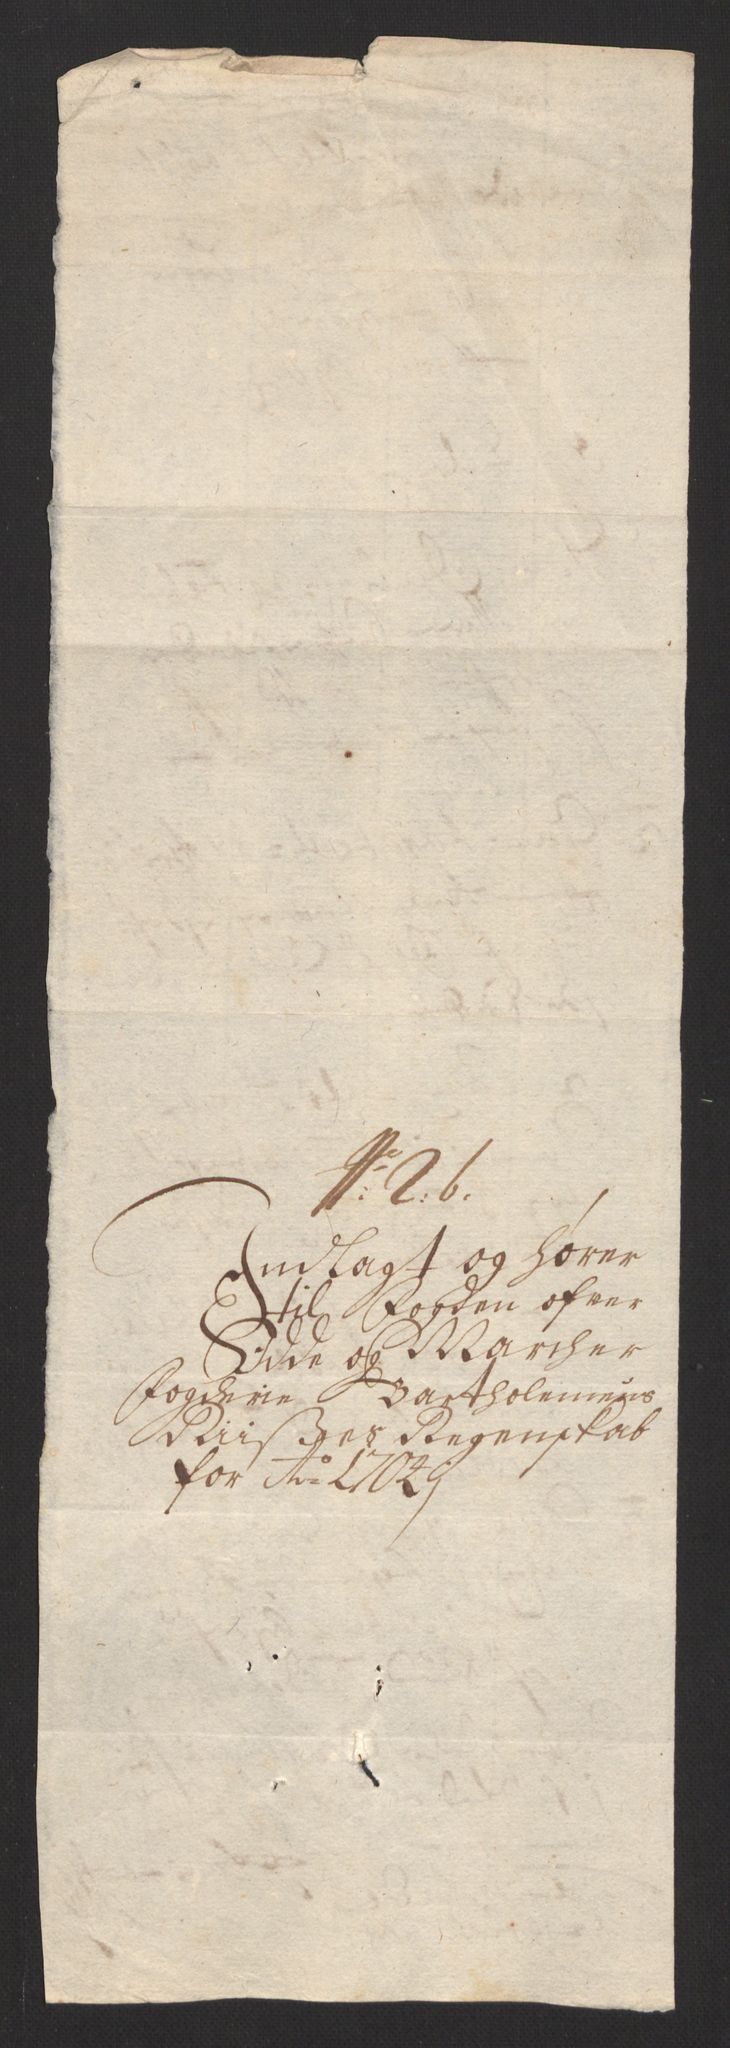 No: 2: 6.
Indlagt og hører
til Fogden ofver
Idde og Marcher
Fogderie Bartholemeus
Riisses Regenskab
for Ao 1704